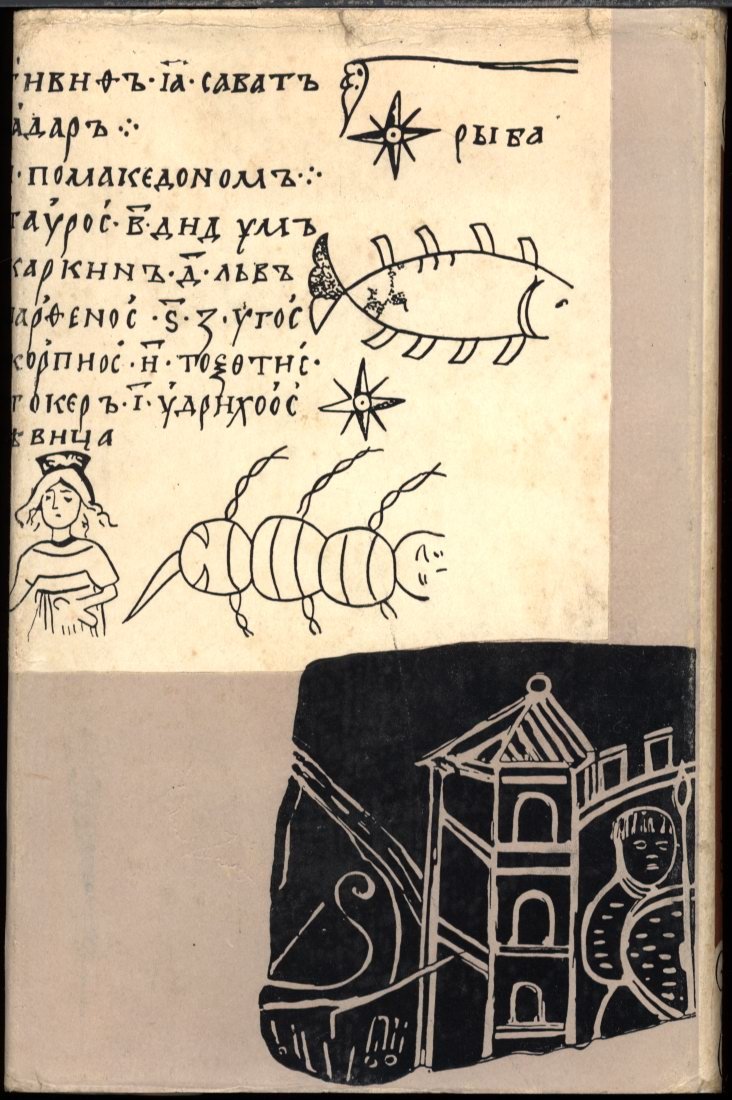 ИВНѲЪ·ІА·САВАТЪ
АДАРЪ
ПОМАКЕДОNОМЪ
ТАУРОС·В·ДНД УМЪ
КАРКИNЪ·Д·ЛЬВЪ
АРѲЕNОС·Ѕ·З·УГОС
КОРПИОС·Н·ТОѮОТНС·
ГОКЕРЪ·І·УДРИХООС
ѢВИЦА
РЫБА